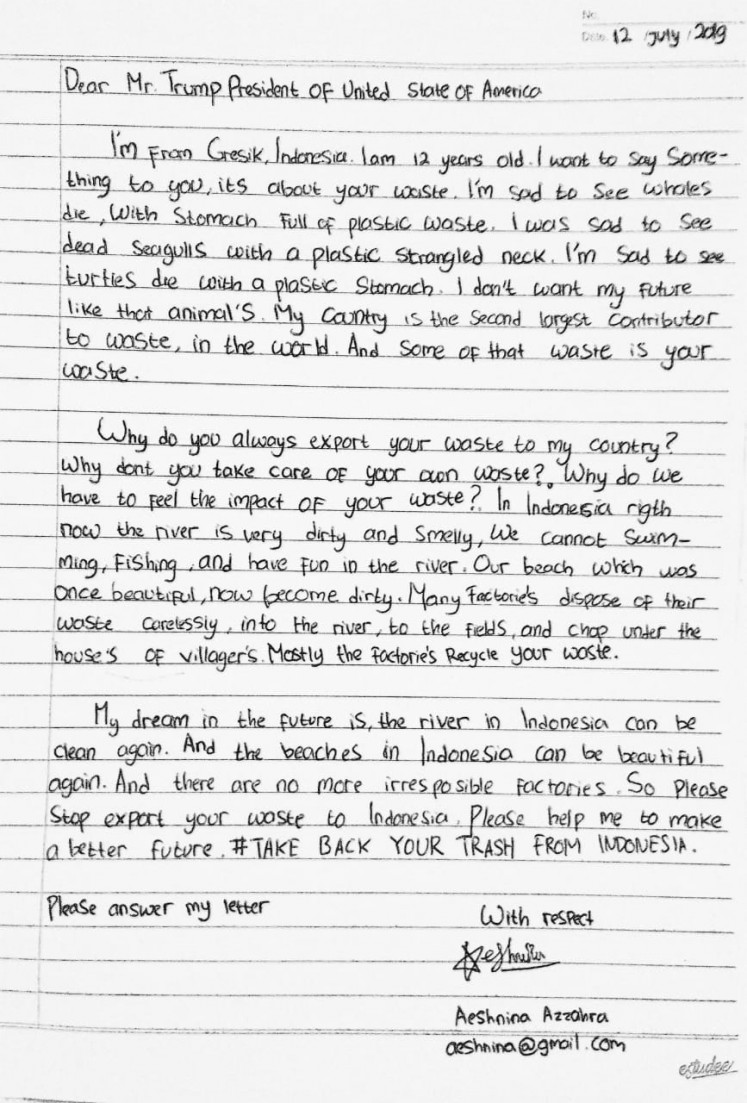 No.
Date. 12 July, 2019
Dear Mr. Trump President Of United State Of America
I'm From Gresik, Indonesia. I am 12 years old. I want to say Some-
thing to you, its about your waste. I'm sad to see whales
die, with Stomach full of plastic waste. I was sad to see
dead seagulls with a plastic strangled neck. I'm sad to see
turtles die with a plastic Stomach. I don't want my future
like that animal's. My Country is the Second largest Contributor
to waste, in the world. And some of that waste is your
waste.
Why do you always export your waste to my country?
Why dont you take care of your own waste? Why do we
have to feel the impact of your waste? In Indonesia rigth
now the river is very dirty and smelly, We cannot Swim-
ming, Fishing, and have fun in the river. Our beach which was
once beautiful, now become dirty. Many factorie's dispose of their
waste carelessly, into the river, to the fields, and chop under the
house's of villager's. Mostly the factorie's Recycle your waste.
My dream in the future is, the river in Indonesia can be
clean again. And the beaches in Indonesia can be beautiful
again. And there are no more irresposible factories. So Please
Stop export your waste to Indonesia. Please help me to make
a better future. #TAKE BACK YOUR TRASH FROM INDONESIA.
Please answer my letter
With respect
Aeshnina Azzahra
aeshnina@gmail.com